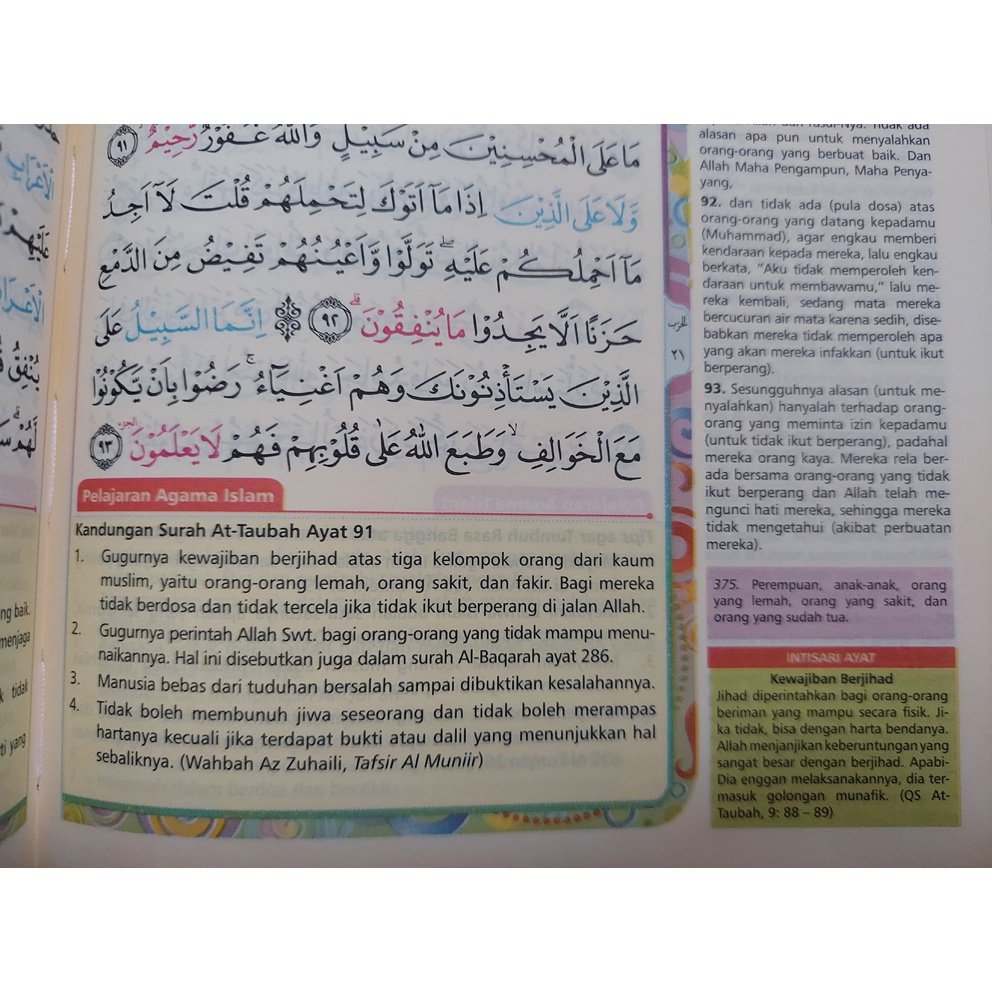 مَا عَلَى الْمُحْسِنِيْنَ مِنْ سَبِيْلٍ وَاللّٰهُ غَفُوْرٌ رَّحِيْمٌۙ ٩١
وَّلَا عَلَى الَّذِيْنَ اِذَا مَآ اَتَوْكَ لِتَحْمِلَهُمْ قُلْتَ لَآ اَجِدُ
مَآ اَحْمِلُكُمْ عَلَيْهِ ۖتَوَلَّوْا وَّاَعْيُنُهُمْ تَفِيْضُ مِنَ الدَّمْعِ
حَزَنًا اَلَّا يَجِدُوْا مَا يُنْفِقُوْنَۗ ٩٢ اِنَّمَا السَّبِيْلُ عَلَى
الَّذِيْنَ يَسْتَأْذِنُوْنَكَ وَهُمْ اَغْنِيَاۤءُۚ رَضُوْا بِاَنْ يَّكُوْنُوْا
مَعَ الْخَوَالِفِۙ وَطَبَعَ اللّٰهُ عَلٰى قُلُوْبِهِمْ فَهُمْ لَا يَعْلَمُوْنَ ٩٣
Pelajaran Agama Islam
Kandungan Surah At-Taubah Ayat 91
1. Gugurnya kewajiban berjihad atas tiga kelompok orang dari kaum
muslim, yaitu orang-orang lemah, orang sakit, dan fakir. Bagi mereka
tidak berdosa dan tidak tercela jika tidak ikut berperang di jalan Allah.
2. Gugurnya perintah Allah Swt. bagi orang-orang yang tidak mampu menu-
naikannya. Hal ini disebutkan juga dalam surah Al-Baqarah ayat 286.
3. Manusia bebas dari tuduhan bersalah sampai dibuktikan kesalahannya.
4. Tidak boleh membunuh jiwa seseorang dan tidak boleh merampas
hartanya kecuali jika terdapat bukti atau dalil yang menunjukkan hal
sebaliknya. (Wahbah Az Zuhaili, Tafsir Al Muniir)
الحزب
٢١
alasan apa pun untuk menyalahkan
orang-orang yang berbuat baik. Dan
Allah Maha Pengampun, Maha Penya-
yang,
92. dan tidak ada (pula dosa) atas
orang-orang yang datang kepadamu
(Muhammad), agar engkau memberi
kendaraan kepada mereka, lalu engkau
berkata, "Aku tidak memperoleh ken-
daraan untuk membawamu," lalu me-
reka kembali, sedang mata mereka
bercucuran air mata karena sedih, dise-
babkan mereka tidak memperoleh apa
yang akan mereka infakkan (untuk ikut
berperang).
93. Sesungguhnya alasan (untuk me-
nyalahkan) hanyalah terhadap orang-
orang yang meminta izin kepadamu
(untuk tidak ikut berperang), padahal
mereka orang kaya. Mereka rela ber-
ada bersama orang-orang yang tidak
ikut berperang dan Allah telah me-
ngunci hati mereka, sehingga mereka
tidak mengetahui (akibat perbuatan
mereka).
375. Perempuan, anak-anak, orang
yang lemah, orang yang sakit, dan
orang yang sudah tua.
INTISARI AYAT
Kewajiban Berjihad
Jihad diperintahkan bagi orang-orang
beriman yang mampu secara fisik. Ji-
ka tidak, bisa dengan harta bendanya.
Allah menjanjikan keberuntungan yang
sangat besar dengan berjihad. Apabi-
Dia enggan melaksanakannya, dia ter-
masuk golongan munafik. (QS At-
Taubah, 9: 88 – 89)